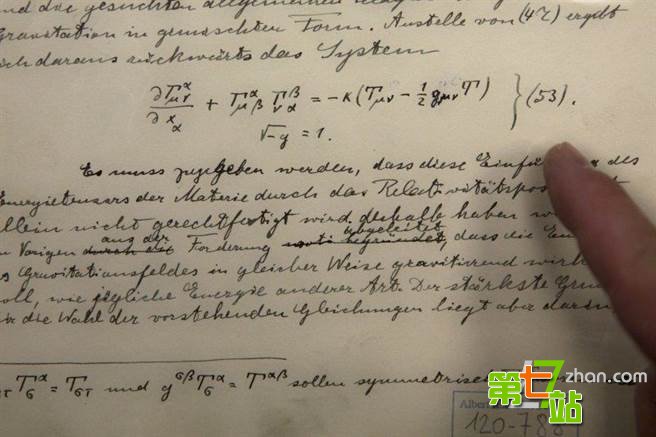 und die gesuchten allgemeinen
Gravitation in gemischter Form. Anstelle von (47) ergibt
sich daraus rückwärts das System
∂Γ^α_μν / ∂x_α + Γ^α_μβ Γ^β_να = −κ(T_μν − ½ g_μν T) } (53).
√−g = 1.
Es muss zugegeben werden, dass diese des
Energietensors der Materie durch das
allein nicht gerechtfertigt wird, deshalb haben
abgeleitet
aus der
Vorigen durch die Forderung begründet, dass die
Gravitationsfeldes in gleicher Weise gravitierend
soll, wie jegliche Energie anderer Art. Der stärkste
die Wahl der vorstehenden Gleichungen liegt aber darin
T^α_σ = T_στ und g^σβ T^α_σ = T^αβ sollen symmetrisch
第七站
7zhan.com
Albert
120-78